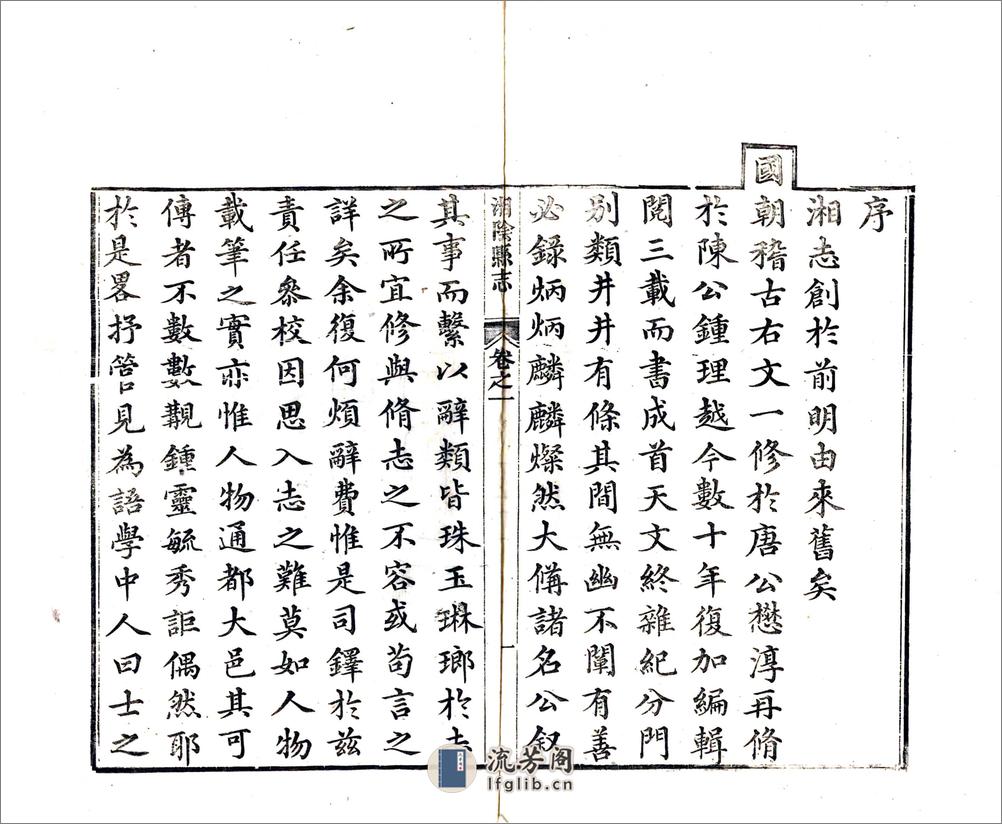 序
湘志創於前明由來舊矣
國朝稽古右文一修於唐公懋淳再脩
於陳公鍾理越今數十年復加編輯
閱三載而書成首天文終雜紀分門
别類井井有條其間無幽不闡有善
必錄炳炳麟麟燦然大備諸名公叙
湘陰縣志
卷之一
一
其事而繫以辭類皆珠玉琳瑯於志
之所宜修與脩志之不容或苟言之
詳矣余復何煩辭費惟是司鐸於兹
責任叅校因思入志之難莫如人物
載筆之實亦惟人物通都大邑其可
傳者不數數覯鍾靈毓秀詎偶然耶
於是畧抒管見為語學中人曰士之
流芳阁
lfglib.cn